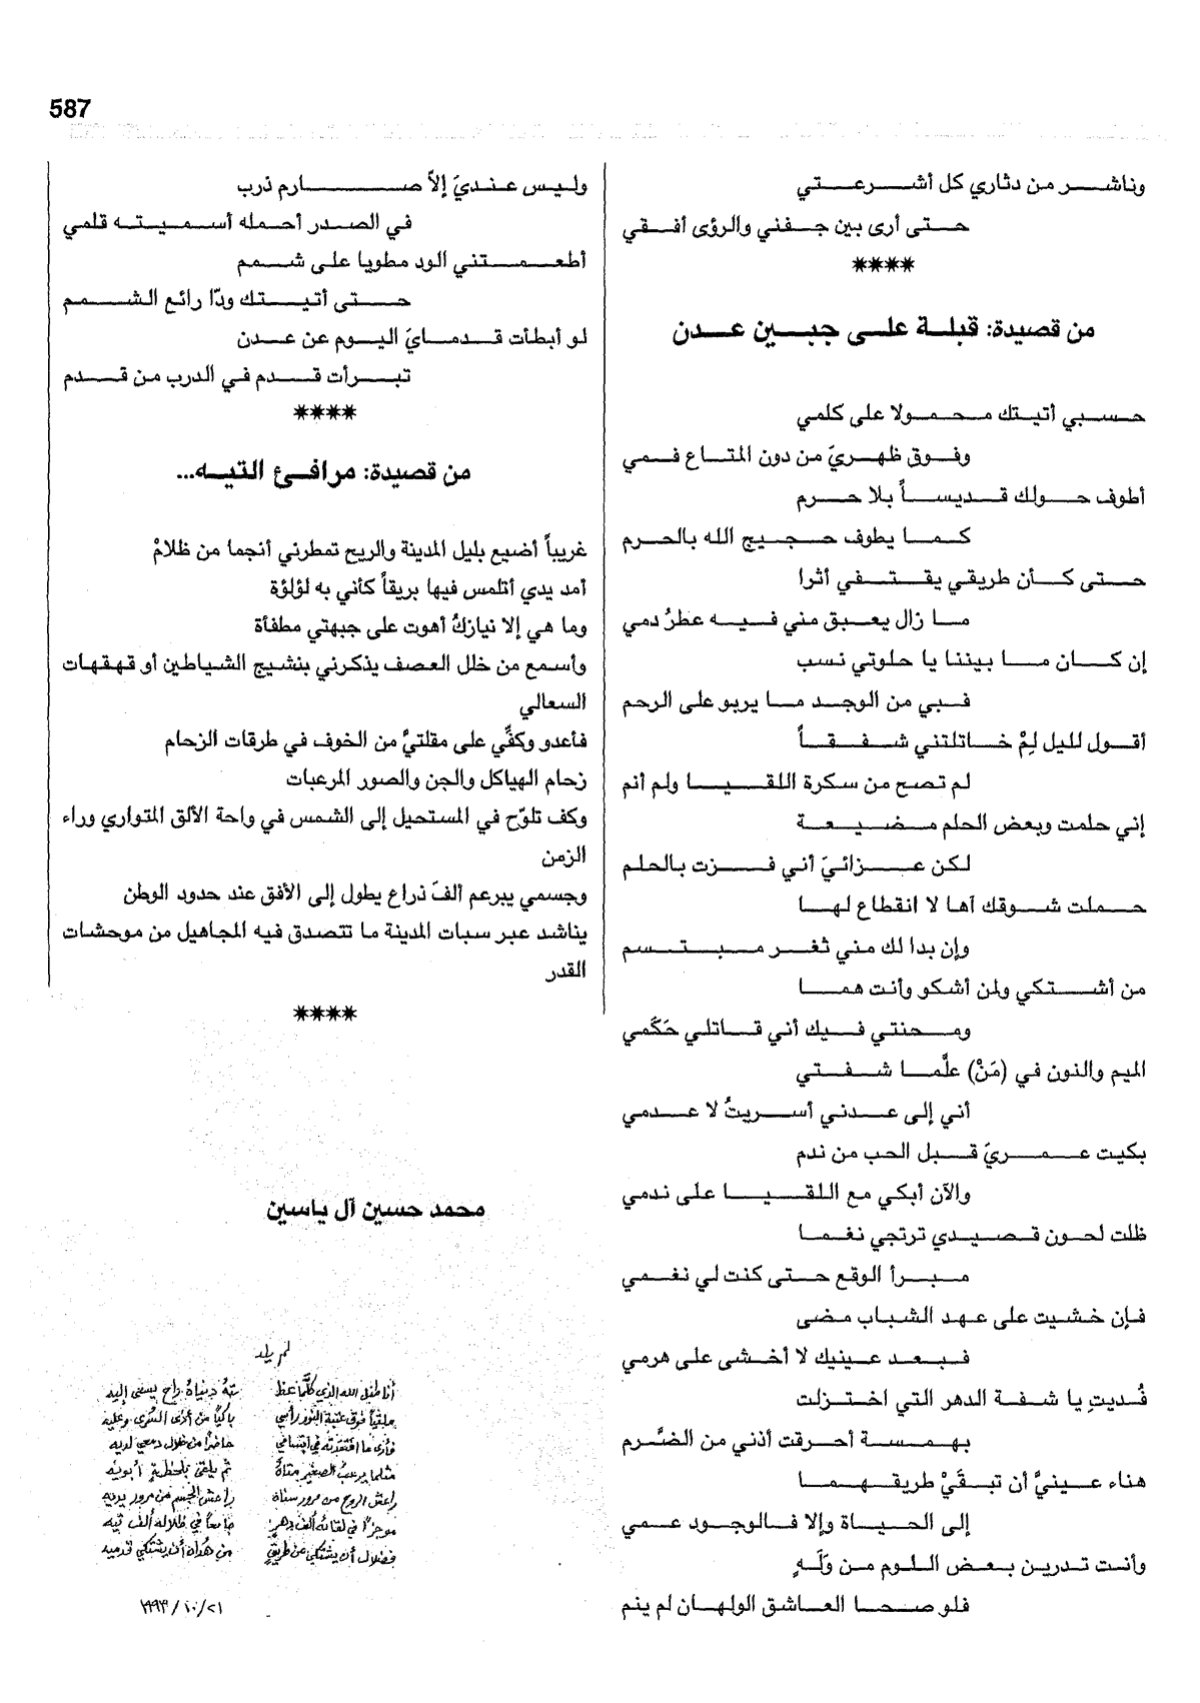 587
وناشر من دثاري كل أشرعتي
حتى أرى بين جفني والرؤى أفقي
****
من قصيدة: قبلة على جبين عدن
حسبي أتيتك محمولا على كلمي
وفوق ظهريَ من دون المتاع فمي
أطوف حولك قديساً بلا حرم
كما يطوف حجيج الله بالحرم
حتى كأن طريقي يقتفي أثرا
ما زال يعبق مني فيه عطرُ دمي
إن كان ما بيننا يا حلوتي نسب
فبي من الوجد ما يربو على الرحم
أقول لليل لِمْ خاتلتني شفقاً
لم تصح من سكرة اللقيا ولم أنم
إني حلمت وبعض الحلم مضيعة
لكن عزائيَ أني فزت بالحلم
حملت شوقك آها لا انقطاع لها
وإن بدا لك مني ثغر مبتسم
من أشتكي ولمن أشكو وأنت هما
ومحنتي فيك أني قاتلي حَكَمي
الميم والنون في (مَنْ) علَّما شفتي
أني إلى عدني أسريتُ لا عدمي
بكيت عمريَ قبل الحب من ندم
والآن أبكي مع اللقيا على ندمي
ظلت لحون قصيدي ترتجي نغما
مبرأ الوقع حتى كنت لي نغمي
فإن خشيت على عهد الشباب مضى
فبعد عينيك لا أخشى على هرمي
فُديتِ يا شفة الدهر التي اختزلت
بهمسة أحرقت أذني من الضَّرم
هناء عينيَّ أن تبقَيْ طريقهما
إلى الحياة وإلا فالوجود عمي
وأنت تدرين بعض اللوم من وَلَهٍ
فلو صحا العاشق الولهان لم ينم
وليس عنديَ إلاّ صارم ذرب
في الصدر أحمله أسميته قلمي
أطعمتني الود مطويا على شمم
حتى أتيتك ودّا رائع الشمم
لو أبطأت قدمايَ اليوم عن عدن
تبرأت قدم في الدرب من قدم
****
من قصيدة: مرافئ التيه...
غريباً أضيع بليل المدينة والريح تمطرني أنجما من ظلامْ
أمد يدي أتلمس فيها بريقاً كأني به لؤلؤة
وما هي إلا نيازكُ أهوت على جبهتي مطفأة
وأسمع من خلل العصف يذكرني بنشيج الشياطين أو قهقهات
السعالي
فأعدو وكفِّي على مقلتيَّ من الخوف في طرقات الزحام
زحام الهياكل والجن والصور المرعبات
وكف تلوّح في المستحيل إلى الشمس في واحة الألق المتواري وراء
الزمن
وجسمي يبرعم ألفَ ذراع يطول إلى الأفق عند حدود الوطن
يناشد عبر سبات المدينة ما تتصدق فيه المجاهيل من موحشات
القدر
****
محمد حسين آل ياسين
لم يلد
أنا طفل الله الذي كلَّما عظـ ـتهُ دنياهُ راح يسعى إليه
ملقياً فوق عتبة النور رأسي باكياً من أذى السُّرى وعليه
فأرى ما افتقدته في ابتسامي حاضرًا من خلال دمعي لديه
مثلما يرعبُ الصغير متاهٌ ثم يلقى بلحظةٍ أبويه
راعش الروح من مرور سناهُ راعش الجسم من مرور يديه
موجزًا في لقائه ألف دهرٍ جامعاً في ظلاله ألف تيه
فضلال أن يشتكي من طريقٍ من هُداهُ أن يشتكي قدميه
١٩٩٣/١٠/٢١